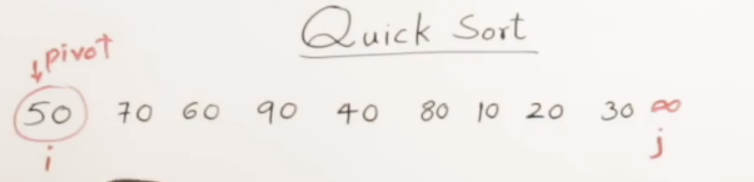 Quick Sort
pivot
50 70 60 90 40 80 10 20 30 ∞
i j